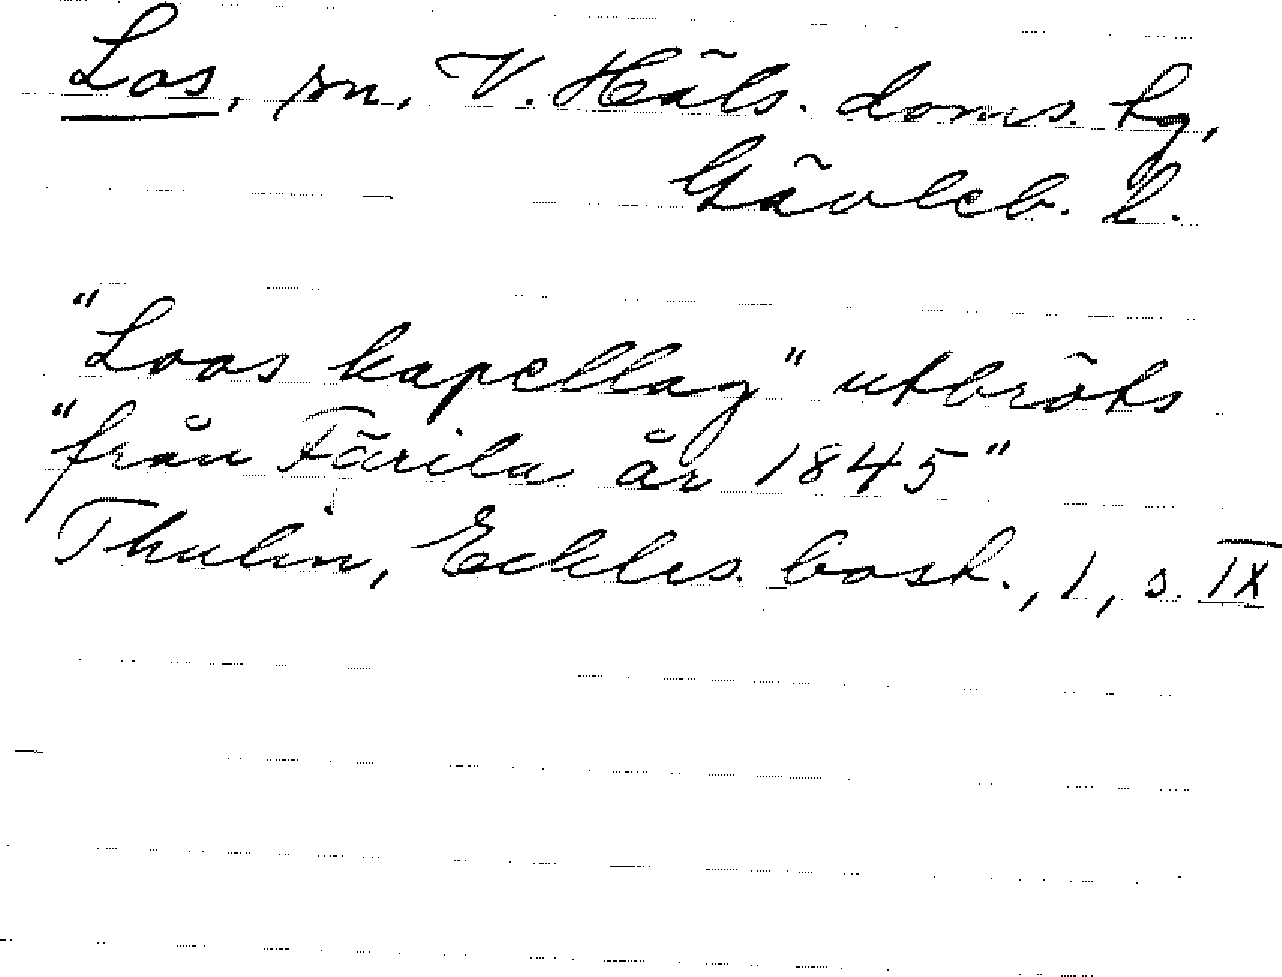 Los, sn, V. Häls. doms. hg,
Gävleb. l.
"Loos kapellag" utbröts
"från Färila år 1845"
Thulin, Eckles. bost., 1, s. IX